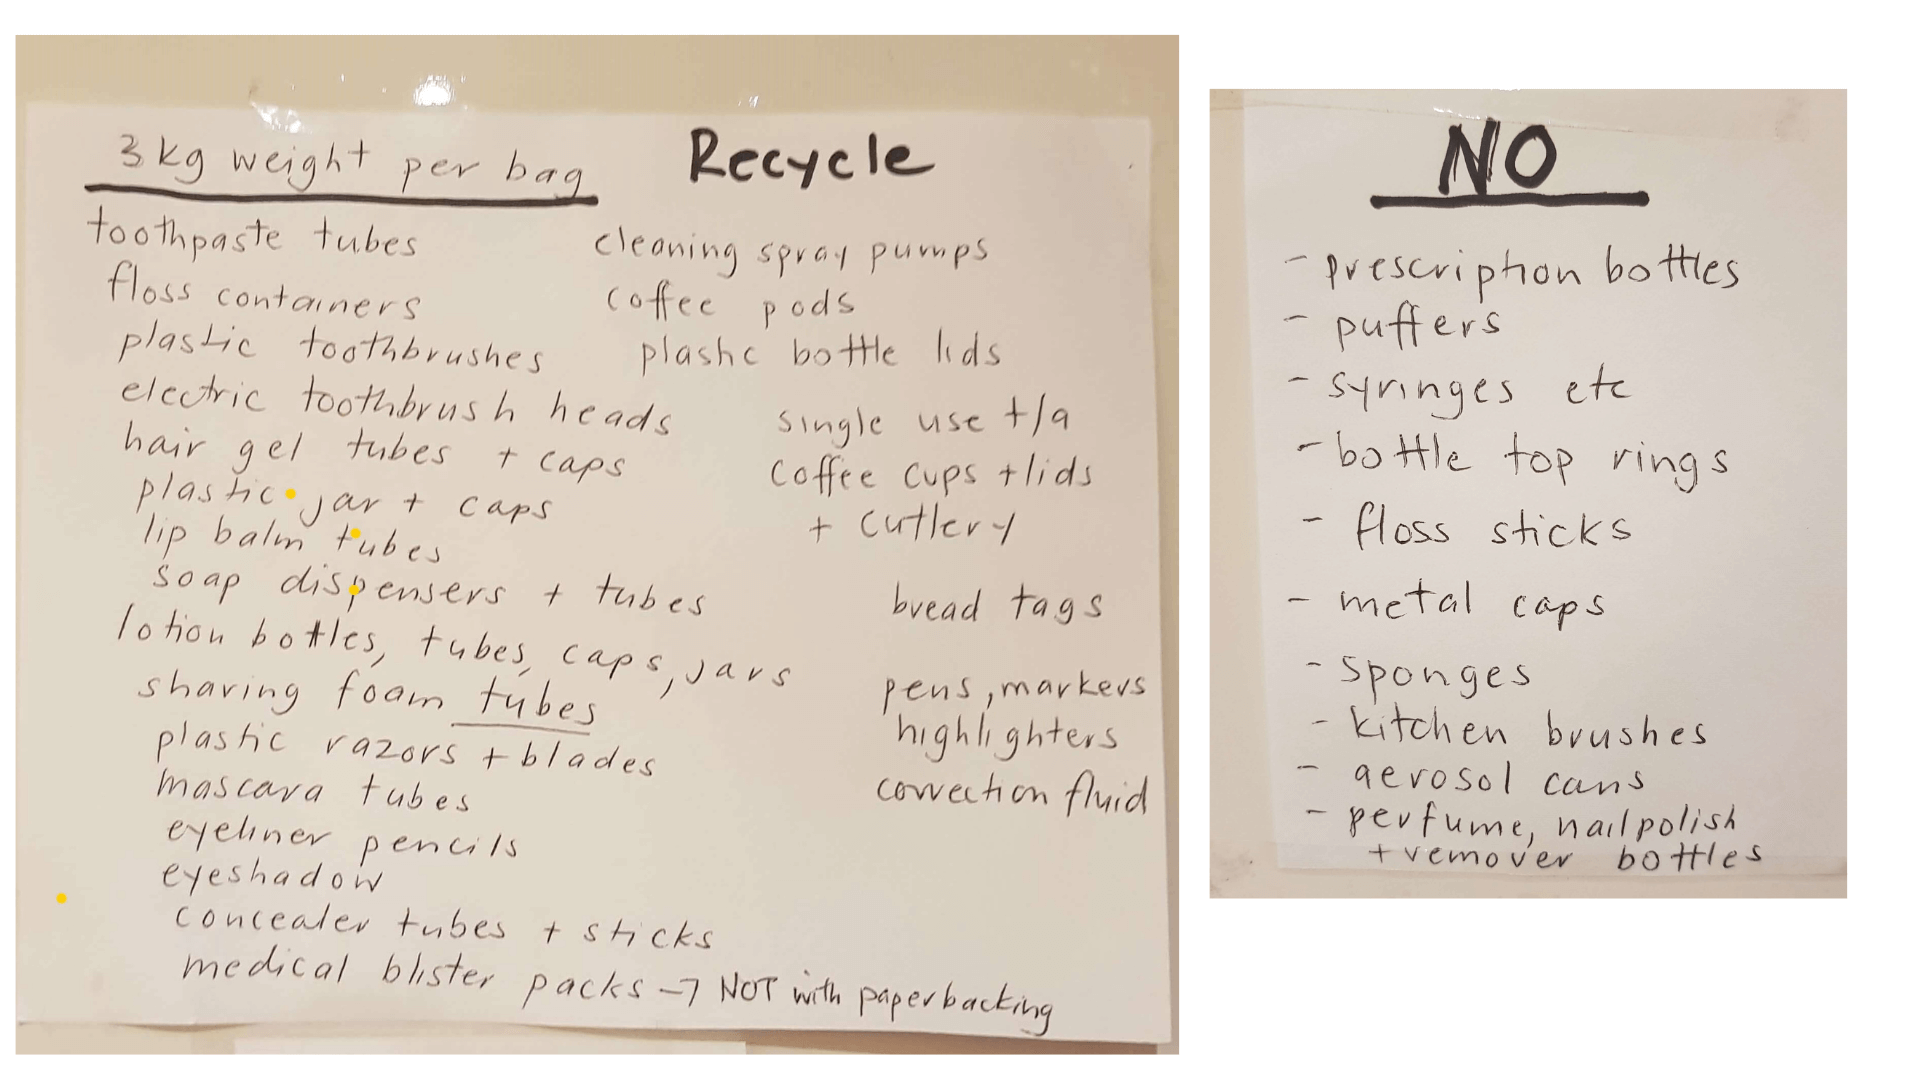 3kg weight per bag
Recycle
toothpaste tubes
floss containers
plastic toothbrushes
electric toothbrush heads
hair gel tubes + caps
plastic jar + caps
lip balm tubes
soap dispensers + tubes
lotion bottles, tubes, caps, jars
shaving foam tubes
plastic razors + blades
mascara tubes
eyeliner pencils
eyeshadow
concealer tubes + sticks
medical blister packs → NOT with paperbacking
cleaning spray pumps
coffee pods
plastic bottle lids
single use t/a
coffee cups + lids
+ cutlery
bread tags
pens, markers
highlighters
correction fluid
NO
- prescription bottles
- puffers
- syringes etc
- bottle top rings
- floss sticks
- metal caps
- sponges
- kitchen brushes
- aerosol cans
- perfume, nailpolish
+ remover bottles